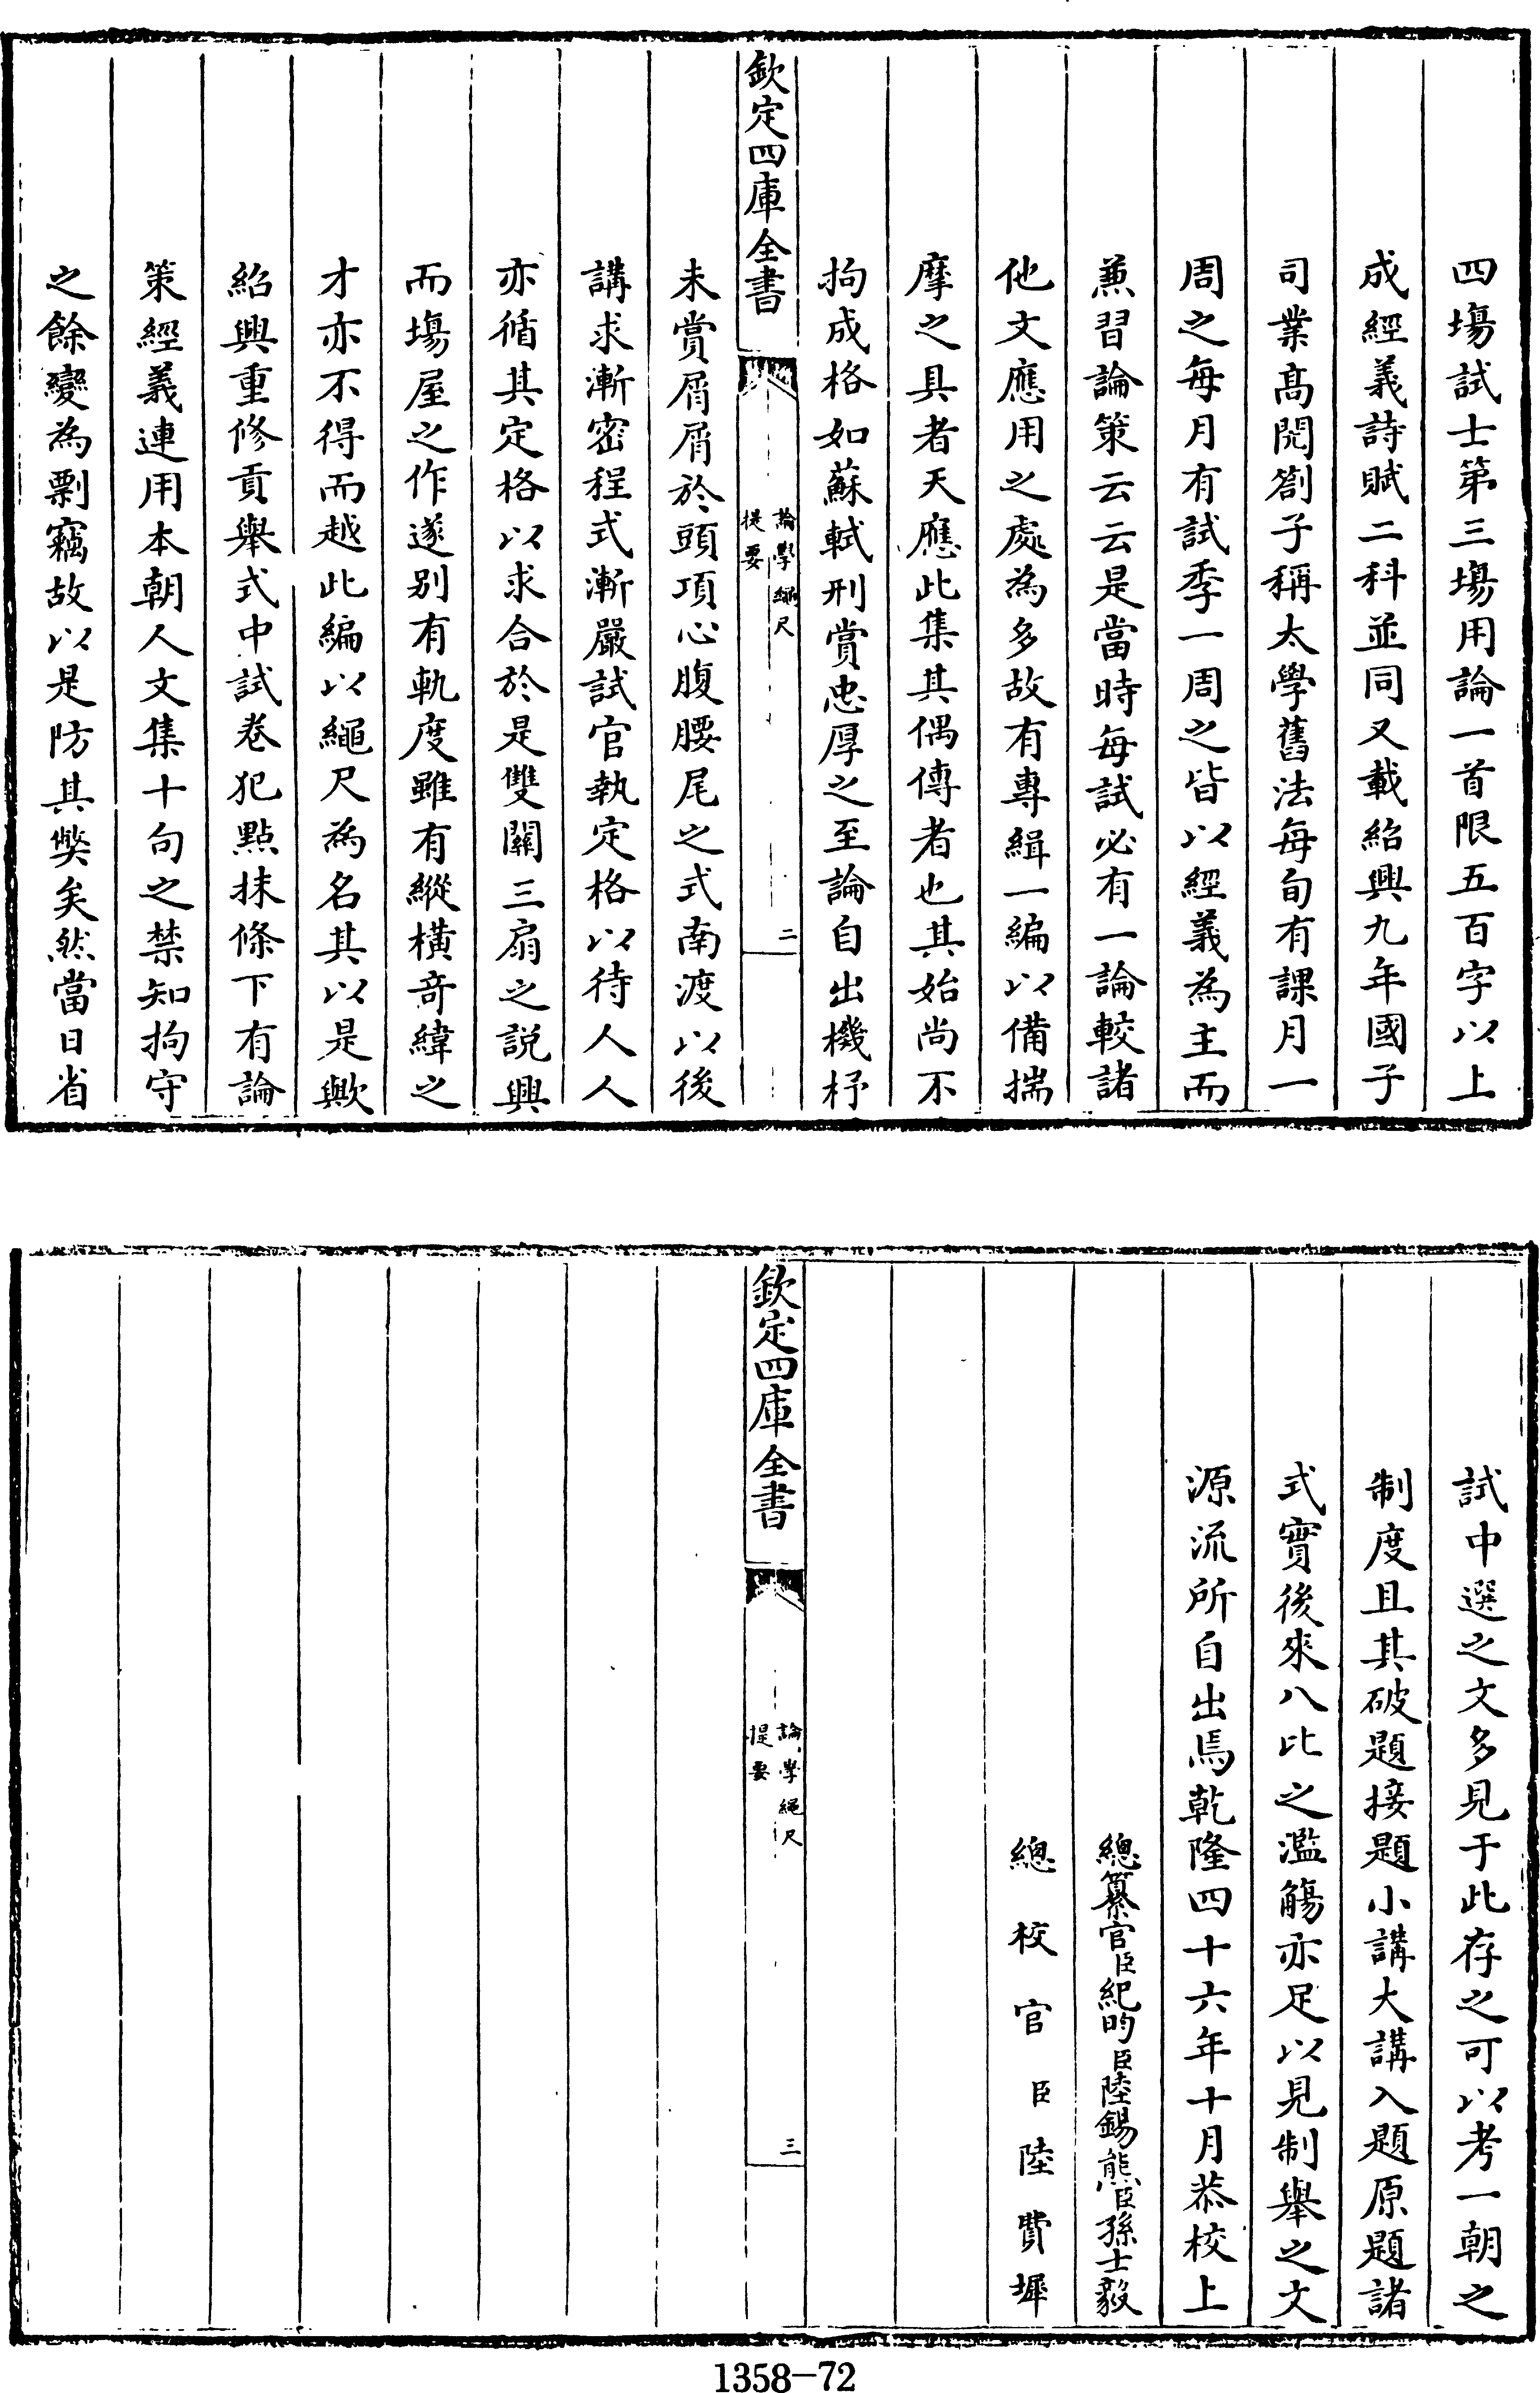 四塲試士第三塲用論一首限五百字以上
成經義詩賦二科並同又載紹興九年國子
司業高閌劄子稱太學舊法每旬有課月一
周之每月有試季一周之皆以經義為主而
兼習論策云云是當時每試必有一論較諸
他文應用之處為多故有專緝一編以備揣
摩之具者天應此集其偶傳者也其始尚不
拘成格如蘇軾刑賞忠厚之至論自出機杼
欽定四庫全書
論學繩尺
提要
二
未賞屑屑於頭項心腹腰尾之式南渡以後
講求漸密程式漸嚴試官執定格以待人人
亦循其定格以求合於是雙關三扇之説興
而塲屋之作遂别有軌度雖有縱橫竒緯之
才亦不得而越此編以繩尺為名其以是歟
紹興重修貢舉式中試卷犯點抹條下有論
策經義連用本朝人文集十句之禁知拘守
之餘變為剽竊故以是防其獘矣然當日省
試中選之文多見于此存之可以考一朝之
制度且其破題接題小講大講入題原題諸
式實後來八比之濫觴亦足以見制舉之文
源流所自出焉乾隆四十六年十月恭校上
總纂官臣紀昀臣陸錫熊臣孫士毅
總校官臣陸費墀
欽定四庫全書
論學繩尺
提要
三
1358-72